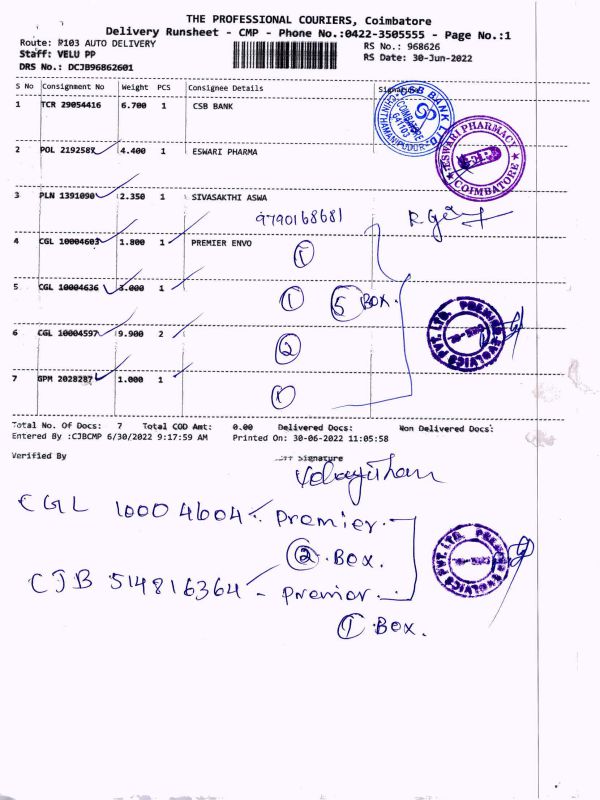 THE PROFESSIONAL COURIERS, Coimbatore
Delivery Runsheet - CMP - Phone No.:0422-3505555 - Page No.:1
Route: P103 AUTO DELIVERY
RS No.: 968626
Staff: VELU PP
RS Date: 30-Jun-2022
DRS No.: DCJB96862601
S No Consignment No Weight PCS Consignee Details Signature
1 TCR 29054416 6.700 1 CSB BANK
CSB BANK LTD
COIMBATORE
2 POL 2192587 4.400 1 ESWARI PHARMA
ESWARI PHARMACY
COIMBATORE
3 PLN 1391090 2.350 1 SIVASAKTHI ASWA
9790168681
4 CGL 10004603 1.800 1 PREMIER ENVO
1
5 CGL 10004636 3.000 1
1 5 Box.
6 CGL 10004597 9.900 2
2
7 GPM 2028287 1.000 1
1
Total No. Of Docs: 7 Total COD Amt: 0.00 Delivered Docs: Non Delivered Docs:
Entered By :CJBCMP 6/30/2022 9:17:59 AM Printed On: 30-06-2022 11:05:58
Verified By Signature
CGL 10004604 - Premier.
2 . Box.
CJB 514816364 - Premier.
1 Box.